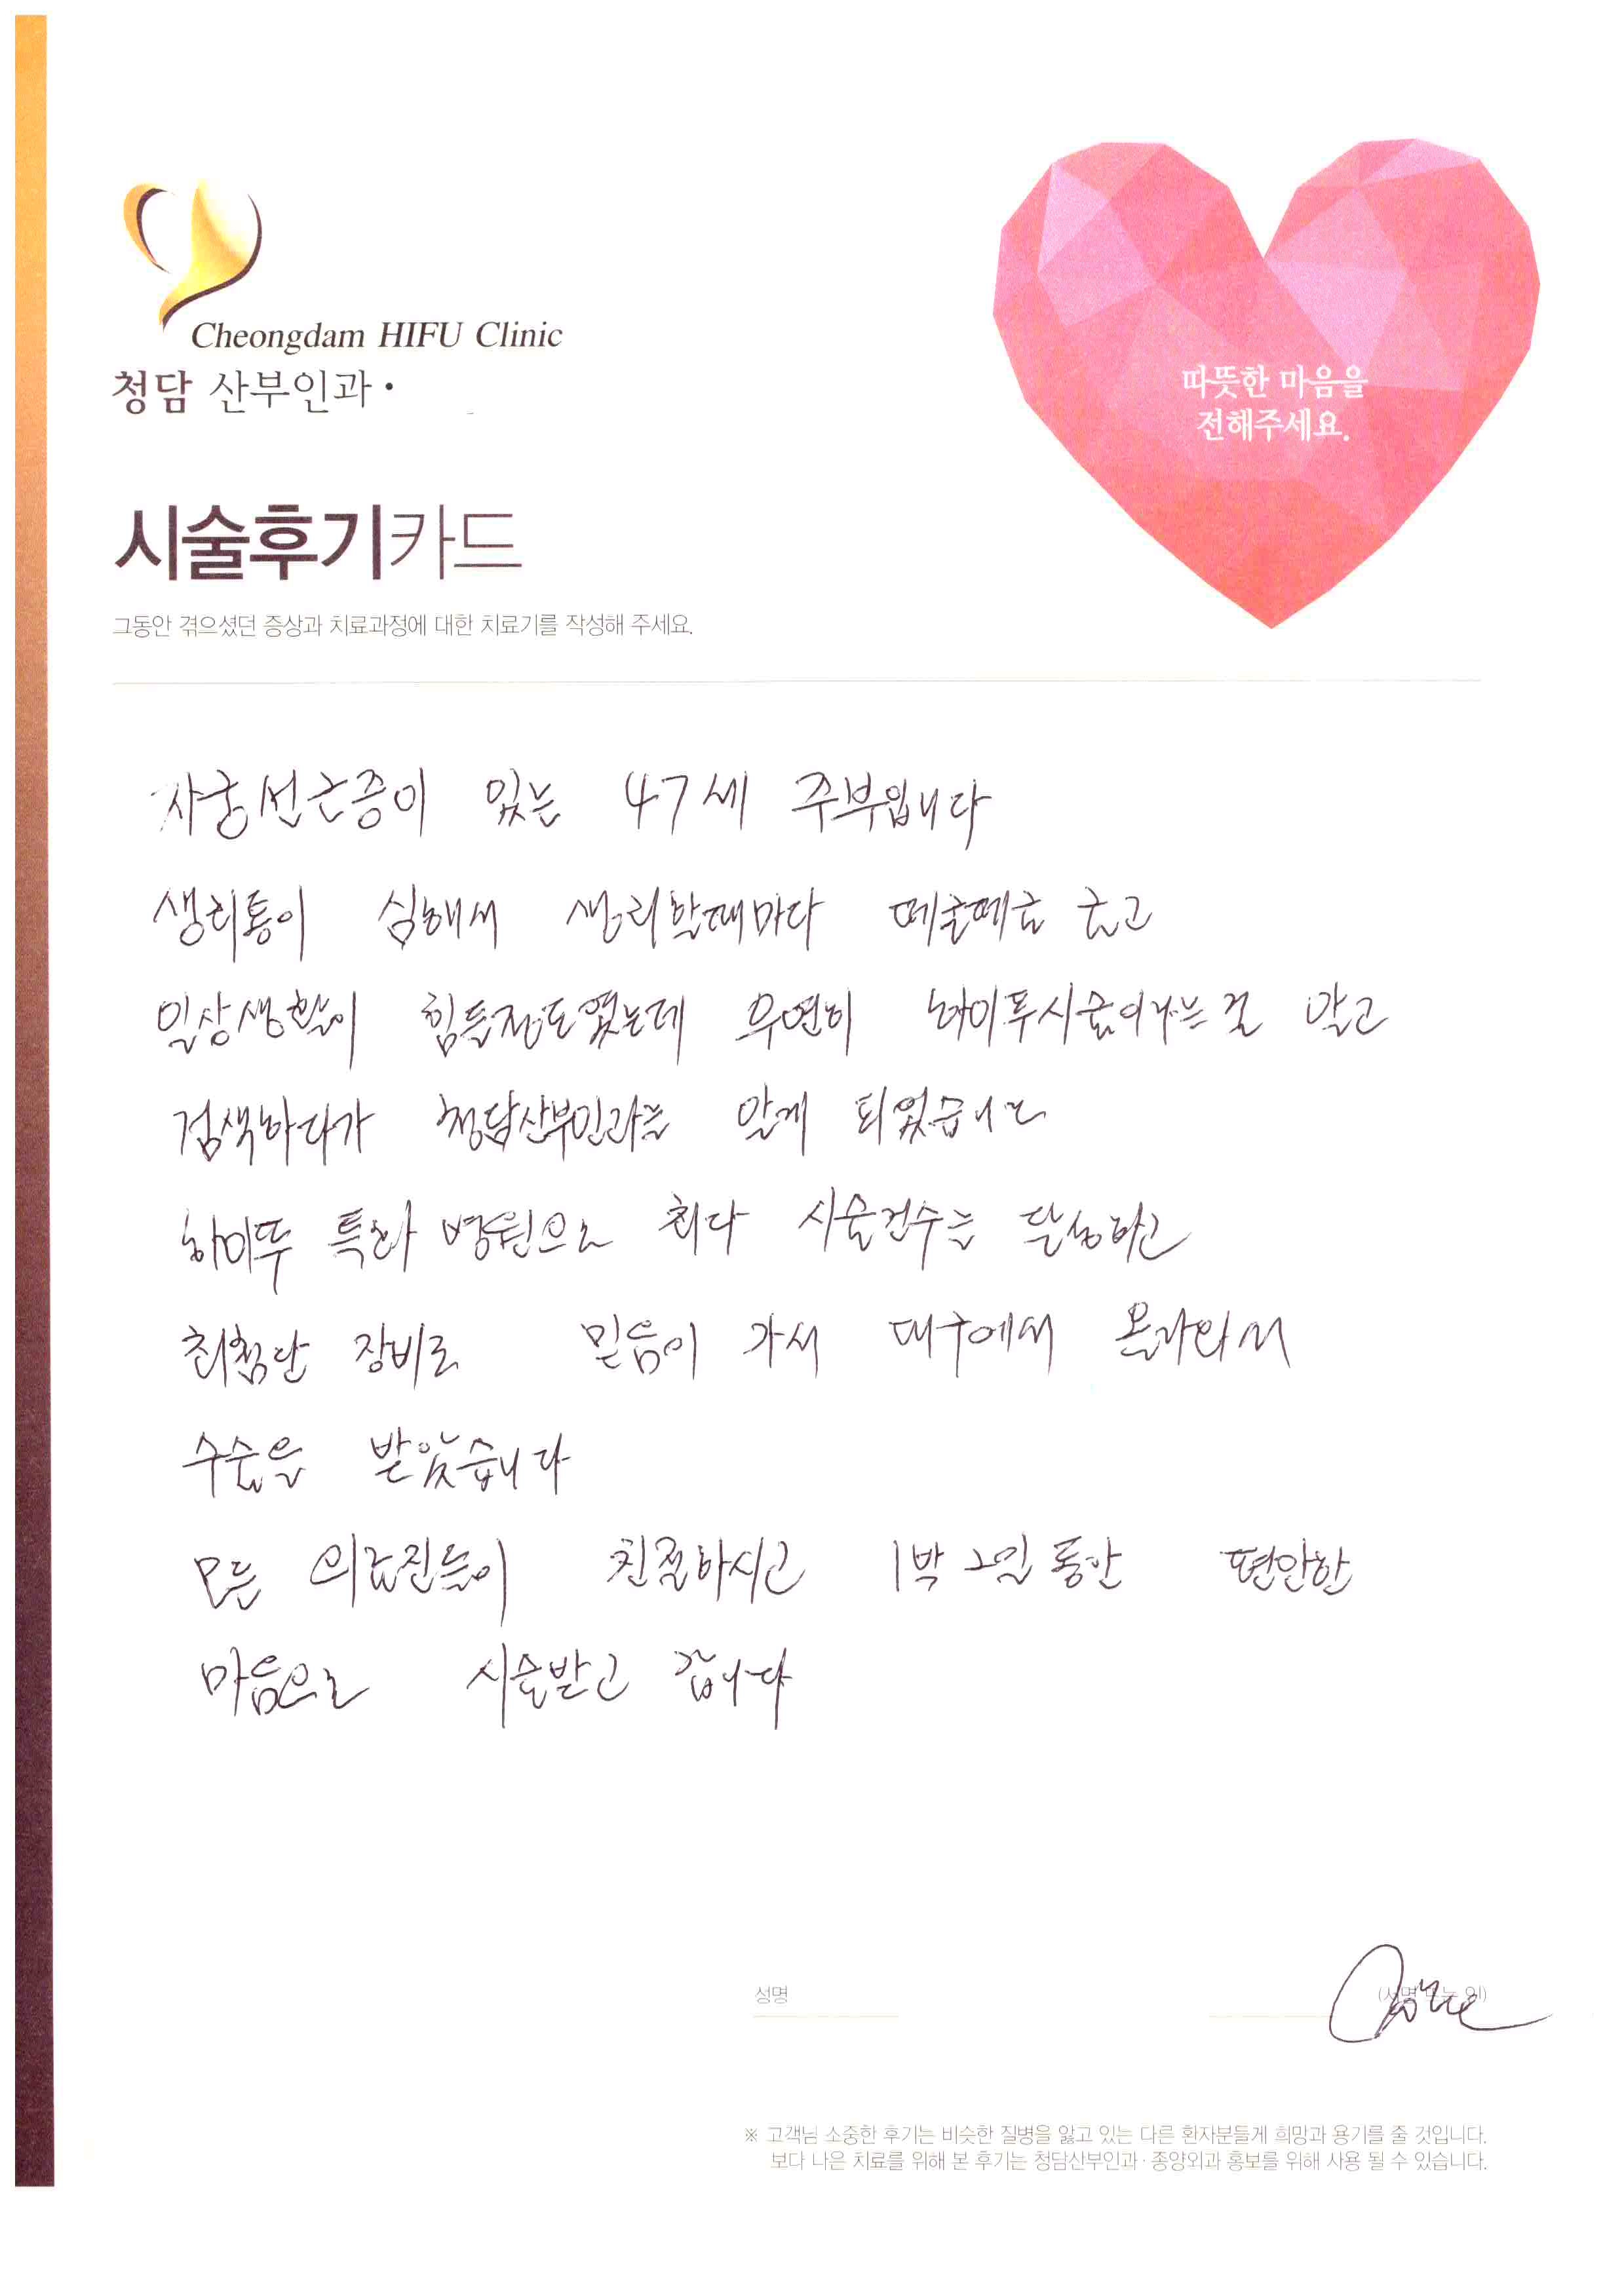 Cheongdam HIFU Clinic
청담 산부인과·
따뜻한 마음을
전해주세요.
시술후기카드
그동안 겪으셨던 증상과 치료과정에 대한 치료기를 작성해 주세요.
자궁선근증이 있는 47세 주부입니다
생리통이 심해서 생리할때마다 떼굴떼굴 굴고
일상생활이 힘들정도였는데 우연히 하이푸시술이라는걸 알고
검색하다가 청담산부인과를 알게 되었습니다
하이푸 특화 병원으로 최다 시술건수를 달성하고
최첨단 장비로 믿음이 가서 대구에서 올라와서
수술을 받았습니다
모든 의료진들이 친절하시고 1박 2일 동안 편안한
마음으로 시술받고 갑니다
성명
(서명 또는 인)
※ 고객님 소중한 후기는 비슷한 질병을 앓고 있는 다른 환자분들게 희망과 용기를 줄 것입니다.
보다 나은 치료를 위해 본 후기는 청담산부인과·종양외과 홍보를 위해 사용 될 수 있습니다.